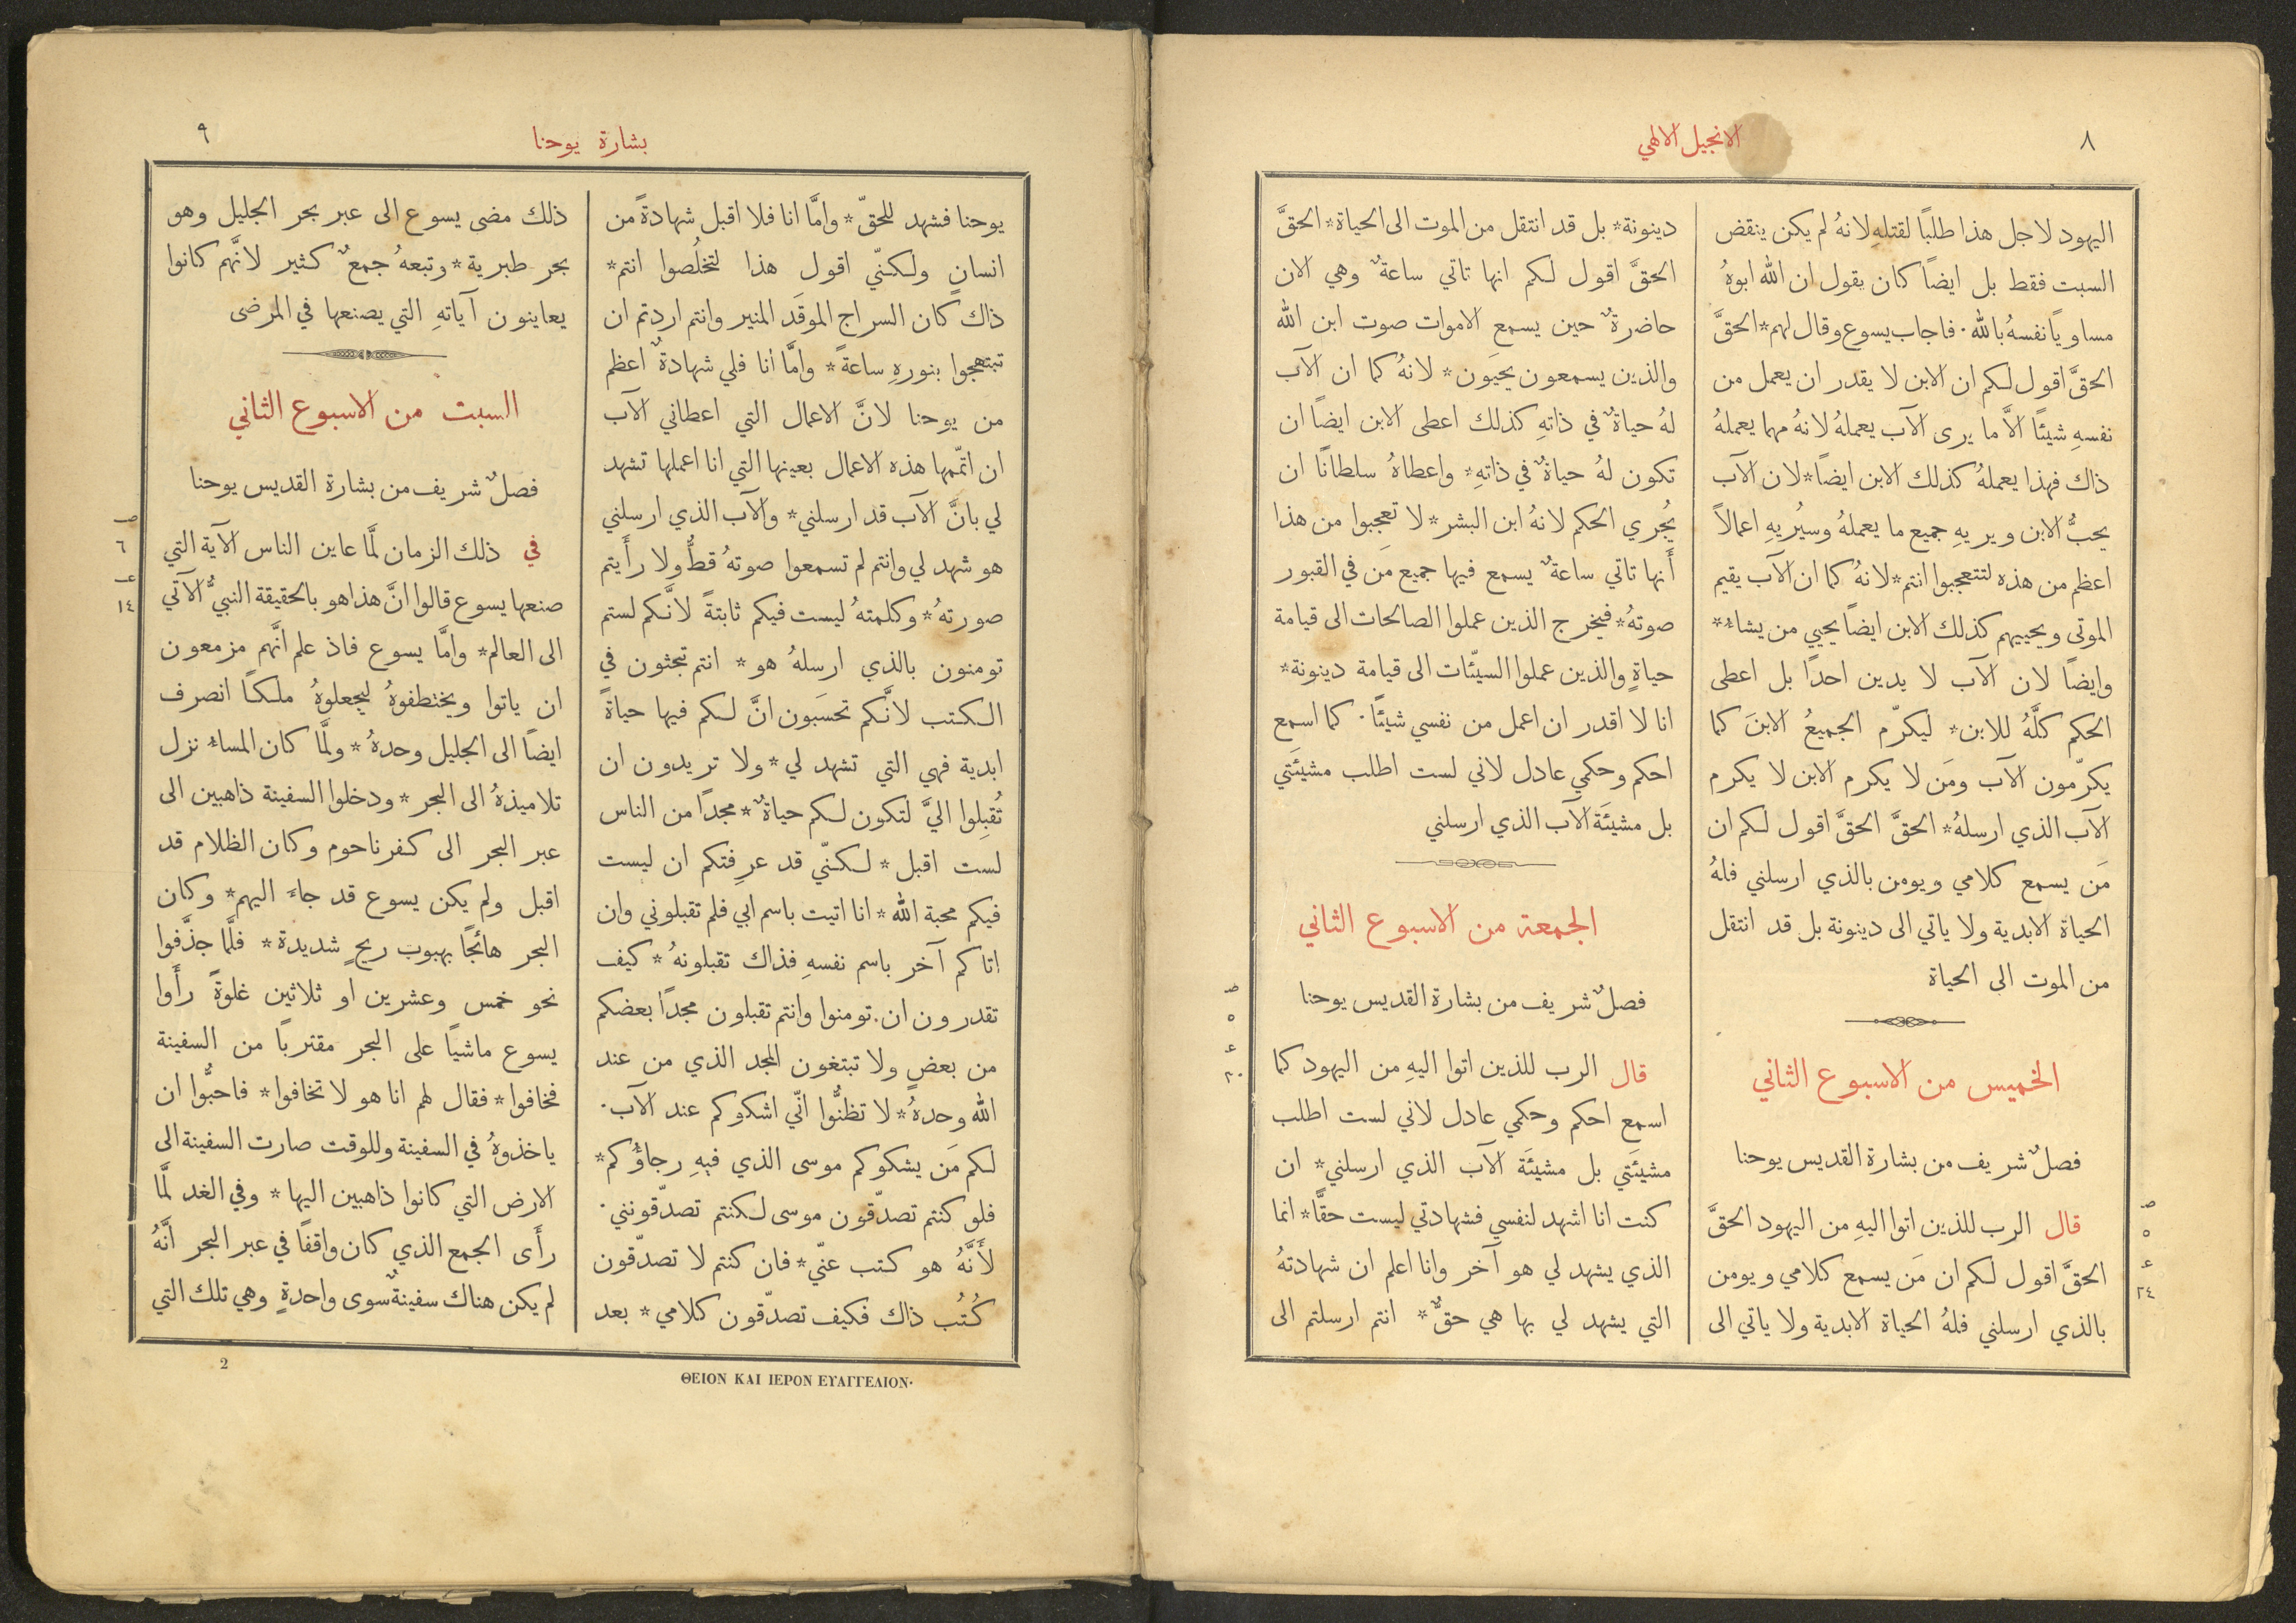 ٨
الانجيل الالهي
اليهود لاجل هذا طلبًا لقتلهِ لانهُ لم يكن ينقض
السبت فقط بل ايضاً كان يقول ان الله ابوهُ
مساوياً نفسهُ بالله٠ فاجاب يسوع وقال لهم* الحقَّ
الحقَّ اقول لكم ان الابن لا يقدر ان يعمل من
نفسهِ شيئًا الاَّ ما يرى الآب يعملهُ لانهُ مهما يعملهُ
ذاك فهذا يعملهُ كذلك الابن ايضاً* لان الآب
يحبُّ الابن ويريهِ جميع ما يعملهُ وسيُريهِ اعمالاً
اعظم من هذه لتتعجبوا انتم* لانهُ كما ان الآب يقيم
الموتى ويحييهم كذلك الابن ايضاً يحيي من يشاءُ*
وايضاً لان الآب لا يدين احدًا بل اعطى
الحكم كلَّهُ للابن* ليكرّم الجميعُ الابنَ كما
يكرّمون الآب ومَن لا يكرم الابن لا يكرم
الآب الذي ارسلهُ* الحقَّ الحقَّ اقول لكم ان
مَن يسمع كلامي ويومن بالذي ارسلني فلهُ
الحياة الابدية ولا ياتي الى دينونة بل قد انتقل
من الموت الى الحياة
الخميس من الاسبوع الثاني
فصلٌ شريف من بشارة القديس يوحنا
صـ
٥
عـ
٢٤
قال الرب للذين اتوا اليهِ من اليهود الحقَّ
الحقَّ اقول لكم ان مَن يسمع كلامي ويومن
بالذي ارسلني فلهُ الحياة الابدية ولا ياتي الى
دينونة* بل قد انتقل من الموت الى الحياة* الحقَّ
الحقَّ اقول لكم انها تاتي ساعةٌ وهي الان
حاضرةٌ حين يسمع الاموات صوت ابن الله
والذين يسمعون يحيَون* لانهُ كما ان الآب
لهُ حياةٌ في ذاتهِ كذلك اعطى الابن ايضاً ان
تكون لهُ حياةٌ في ذاتهِ* واعطاهُ سلطانًا ان
يُجري الحكم لانهُ ابن البشر* لا تعجبوا من هذا
أَنها تاتي ساعةٌ يسمع فيها جميع مَن في القبور
صوتهُ* فيخرج الذين عملوا الصالحات الى قيامة
حياةٍ والذين عملوا السيّئات الى قيامة دينونة*
انا لا اقدر ان اعمل من نفسي شيئًا٠ كما اسمع
احكم وحكمي عادل لاني لست اطلب مشيئَتي
بل مشيئَة الآب الذي ارسلني
الجمعة من الاسبوع الثاني
فصلٌ شريف من بشارة القديس يوحنا
صـ
٥
عـ
٣٠
قال الرب للذين اتوا اليهِ من اليهود كما
اسمع احكم وحكمي عادل لاني لست اطلب
مشيئَتي بل مشيئَة الآب الذي ارسلني* ان
كنت انا اشهد لنفسي فشهادتي ليست حقًّا* انما
الذي يشهد لي هو آخر وانا اعلم ان شهادتهُ
التي يشهد لي بها هي حقٌّ* انتم ارسلتم الى
بشارة يوحنا
٩
يوحنا فشهد للحقّ* وامَّا انا فلا اقبل شهادةً من
انسانٍ ولكنّي اقول هذا لتخلُصوا انتم*
ذاك كان السراج الموقَد المنير وانتم اردتم ان
تبتهجوا بنورهِ ساعةً* وامَّا انا فلي شهادةٌ اعظم
من يوحنا لانَّ الاعمال التي اعطاني الآب
ان اتمّمها هذه الاعمال بعينها التي انا اعملها تشهد
لي بانَّ الآب قد ارسلني* والآب الذي ارسلني
هو شهد لي وانتم لم تسمعوا صوتهُ قطُّ ولا رأَيتم
صورتهُ* وكلمتهُ ليست فيكم ثابتةً لانَّكم لستم
تومنون بالذي ارسلهُ هو* انتم تبحثون في
الكتب لانَّكم تحسَبون انَّ لكم فيها حياةً
ابدية فهي التي تشهد لي* ولا تريدون ان
تُقبِلوا اليَّ لتكون لكم حياةٌ* مجدًا من الناس
لست اقبل* لكنّي قد عرِفتكم ان ليست
فيكم محبة الله* انا اتيت باسم ابي فلم تقبلوني وان
اتاكم آخر باسم نفسهِ فذاك تقبلونهُ* كيف
تقدرون ان تومنوا وانتم تقبلون مجدًا بعضكم
من بعضٍ ولا تبتغون المجد الذي من عند
الله وحدهُ* لا تظنُّوا انّي اشكوكم عند الآب٠
لكم مَن يشكوكم موسى الذي فيهِ رجاؤُكم*
فلو كنتم تصدّقون موسى لكنتم تصدّقونني٠
لأَنَّهُ هو كتب عنّي* فان كنتم لا تصدّقون
كُتُب ذاك فكيف تصدّقون كلامي* بعد
ذلك مضى يسوع الى عبر بحر الجليل وهو
بحر طبرية* وتبعهُ جمعٌ كثير لانَّهم كانوا
يعاينون آياتهِ التي يصنعها في المرضى
السبت من الاسبوع الثاني
فصلٌ شريف من بشارة القديس يوحنا
صـ
٦
عـ
١٤
في ذلك الزمان لمَّا عاين الناس الآية التي
صنعها يسوع قالوا انَّ هذا هو بالحقيقة النبيُّ الآتي
الى العالم* وامَّا يسوع فاذ علم انَّهم مزمعون
ان ياتوا ويختطفوهُ ليجعلوهُ ملكًا انصرف
ايضاً الى الجليل وحدهُ* ولمَّا كان المساءُ نزل
تلاميذهُ الى البحر* ودخلوا السفينة ذاهبين الى
عبر البحر الى كفرناحوم وكان الظلام قد
اقبل ولم يكن يسوع قد جاءَ اليهم* وكان
البحر هائجًا بهبوب ريحٍ شديدة* فلَّما جذَّفوا
نحو خمس وعشرين او ثلاثين غلوةً رأَوا
يسوع ماشيًا على البحر مقتربًا من السفينة
فخافوا* فقال لهم انا هو لا تخافوا* فاحبُّوا ان
ياخذوهُ في السفينة وللوقت صارت السفينة الى
الارض التي كانوا ذاهبين اليها* وفي الغد لمَّا
رأَى الجمع الذي كان واقفًا في عبر البحر انَّهُ
لم يكن هناك سفينةٌ سوى واحدةٍ وهي تلك التي
ΘΕΙΟΝ ΚΑΙ ΙΕΡΟΝ ΕΥΑΓΓΕΛΙΟΝ·
2